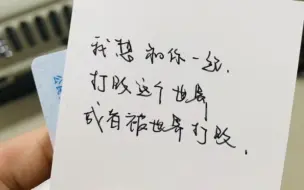 我想和你一起，
打败这个世界
或者被世界打败。